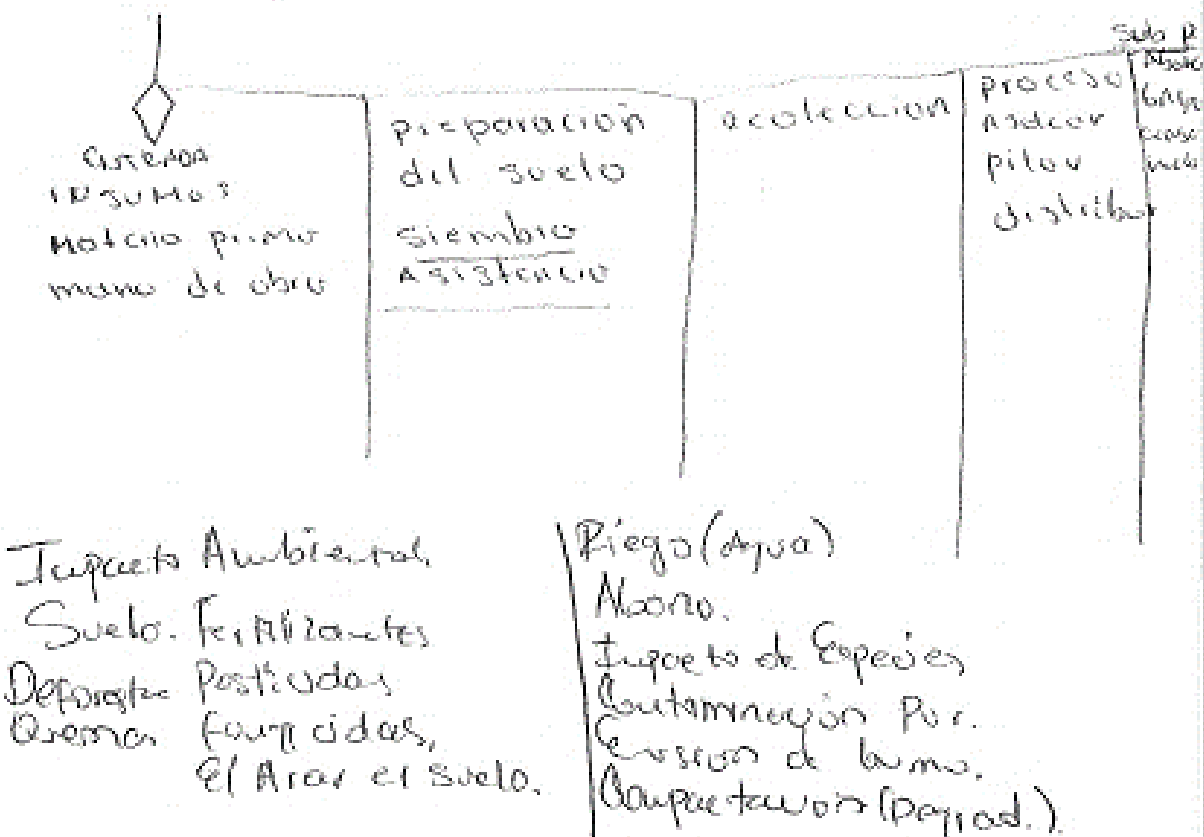 INSUMOS
Materia prima
mano de obra
preparación
del suelo
siembra
Asistencia
recoleccion
proceso
pilar
distribur
Sub p
Impacto Ambiental
Suelo. Fertilizantes
Pesticidas
Quema Fungicidas,
El Arar el suelo.
Riego (Agua)
Abono.
Impacto de Especies
Contaminación Por.
de humo.
Compactavon (Degrad.)